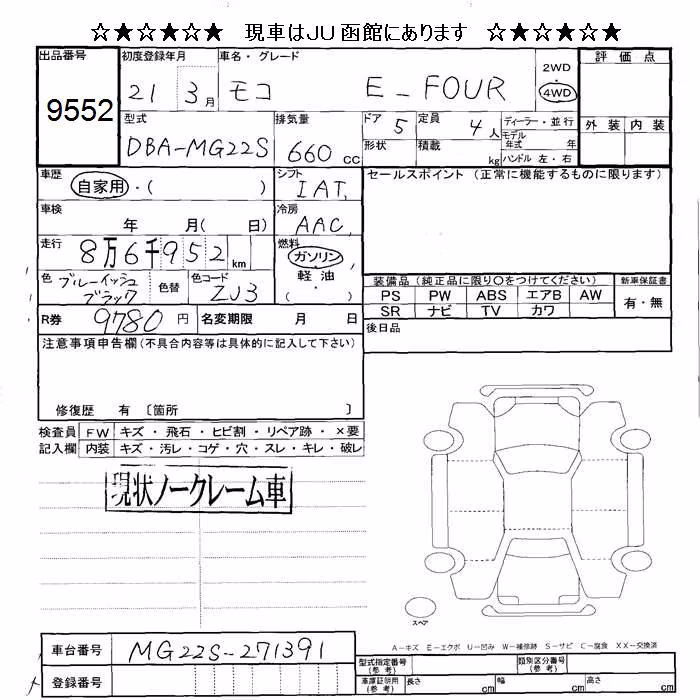 ☆★☆★☆★ 現車はJU函館にあります ☆★☆★☆★
出品番号 9552
初度登録年月 21 3月
車名・グレード モコ E-FOUR
2WD
4WD
評価点
外装 内装
型式 DBA-MG22S
排気量 660cc
ドア 5
形状
定員 4人
積載 kg
ディーラー・並行
モデル年式 年
ハンドル 左・右
車歴 自家用・( )
シフト IAT
セールスポイント(正常に機能するものに限ります)
車検 年 月( 日)
冷房 AAC
走行 8万6千952km
燃料 ガソリン,
軽油
・( )
色 ブルーイッシュブラック
色替
色コード ZJ3
装備品(純正品に限り○をつけてください)
PS PW ABS エアB AW
SR ナビ TV カワ
新車保証書
有・無
R券 9780円
名変期限 月 日
後日品
注意事項申告欄(不具合内容等は具体的に記入して下さい)
修復歴 有 〔箇所 〕
検査員 FW キズ・飛石・ヒビ割・リペア跡・×要
記入欄 内装 キズ・汚レ・コゲ・穴・スレ・キレ・破レ
現状ノークレーム車
スペア
A-キズ E-エクボ U-凹み W-補修跡 S-サビ C-腐食 XX-交換済
車台番号 MG22S-271391
登録番号
型式指定番号(参考)
類別区分番号(参考)
車庫証明用(参考) 長さ cm 幅 cm 高さ cm